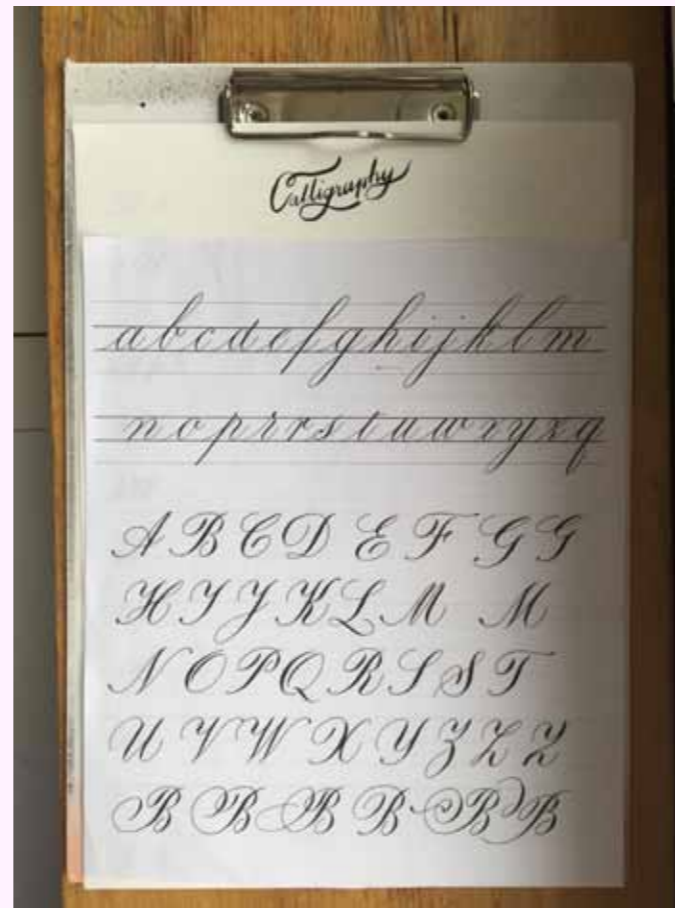 Calligraphy
a b c d e f g h i j k l m
n o p r r s t u w v y x z q
A B C D E F G G
H I J K L M M
N O P Q R S S T
U V W X Y Z Z Z
B B B B B B